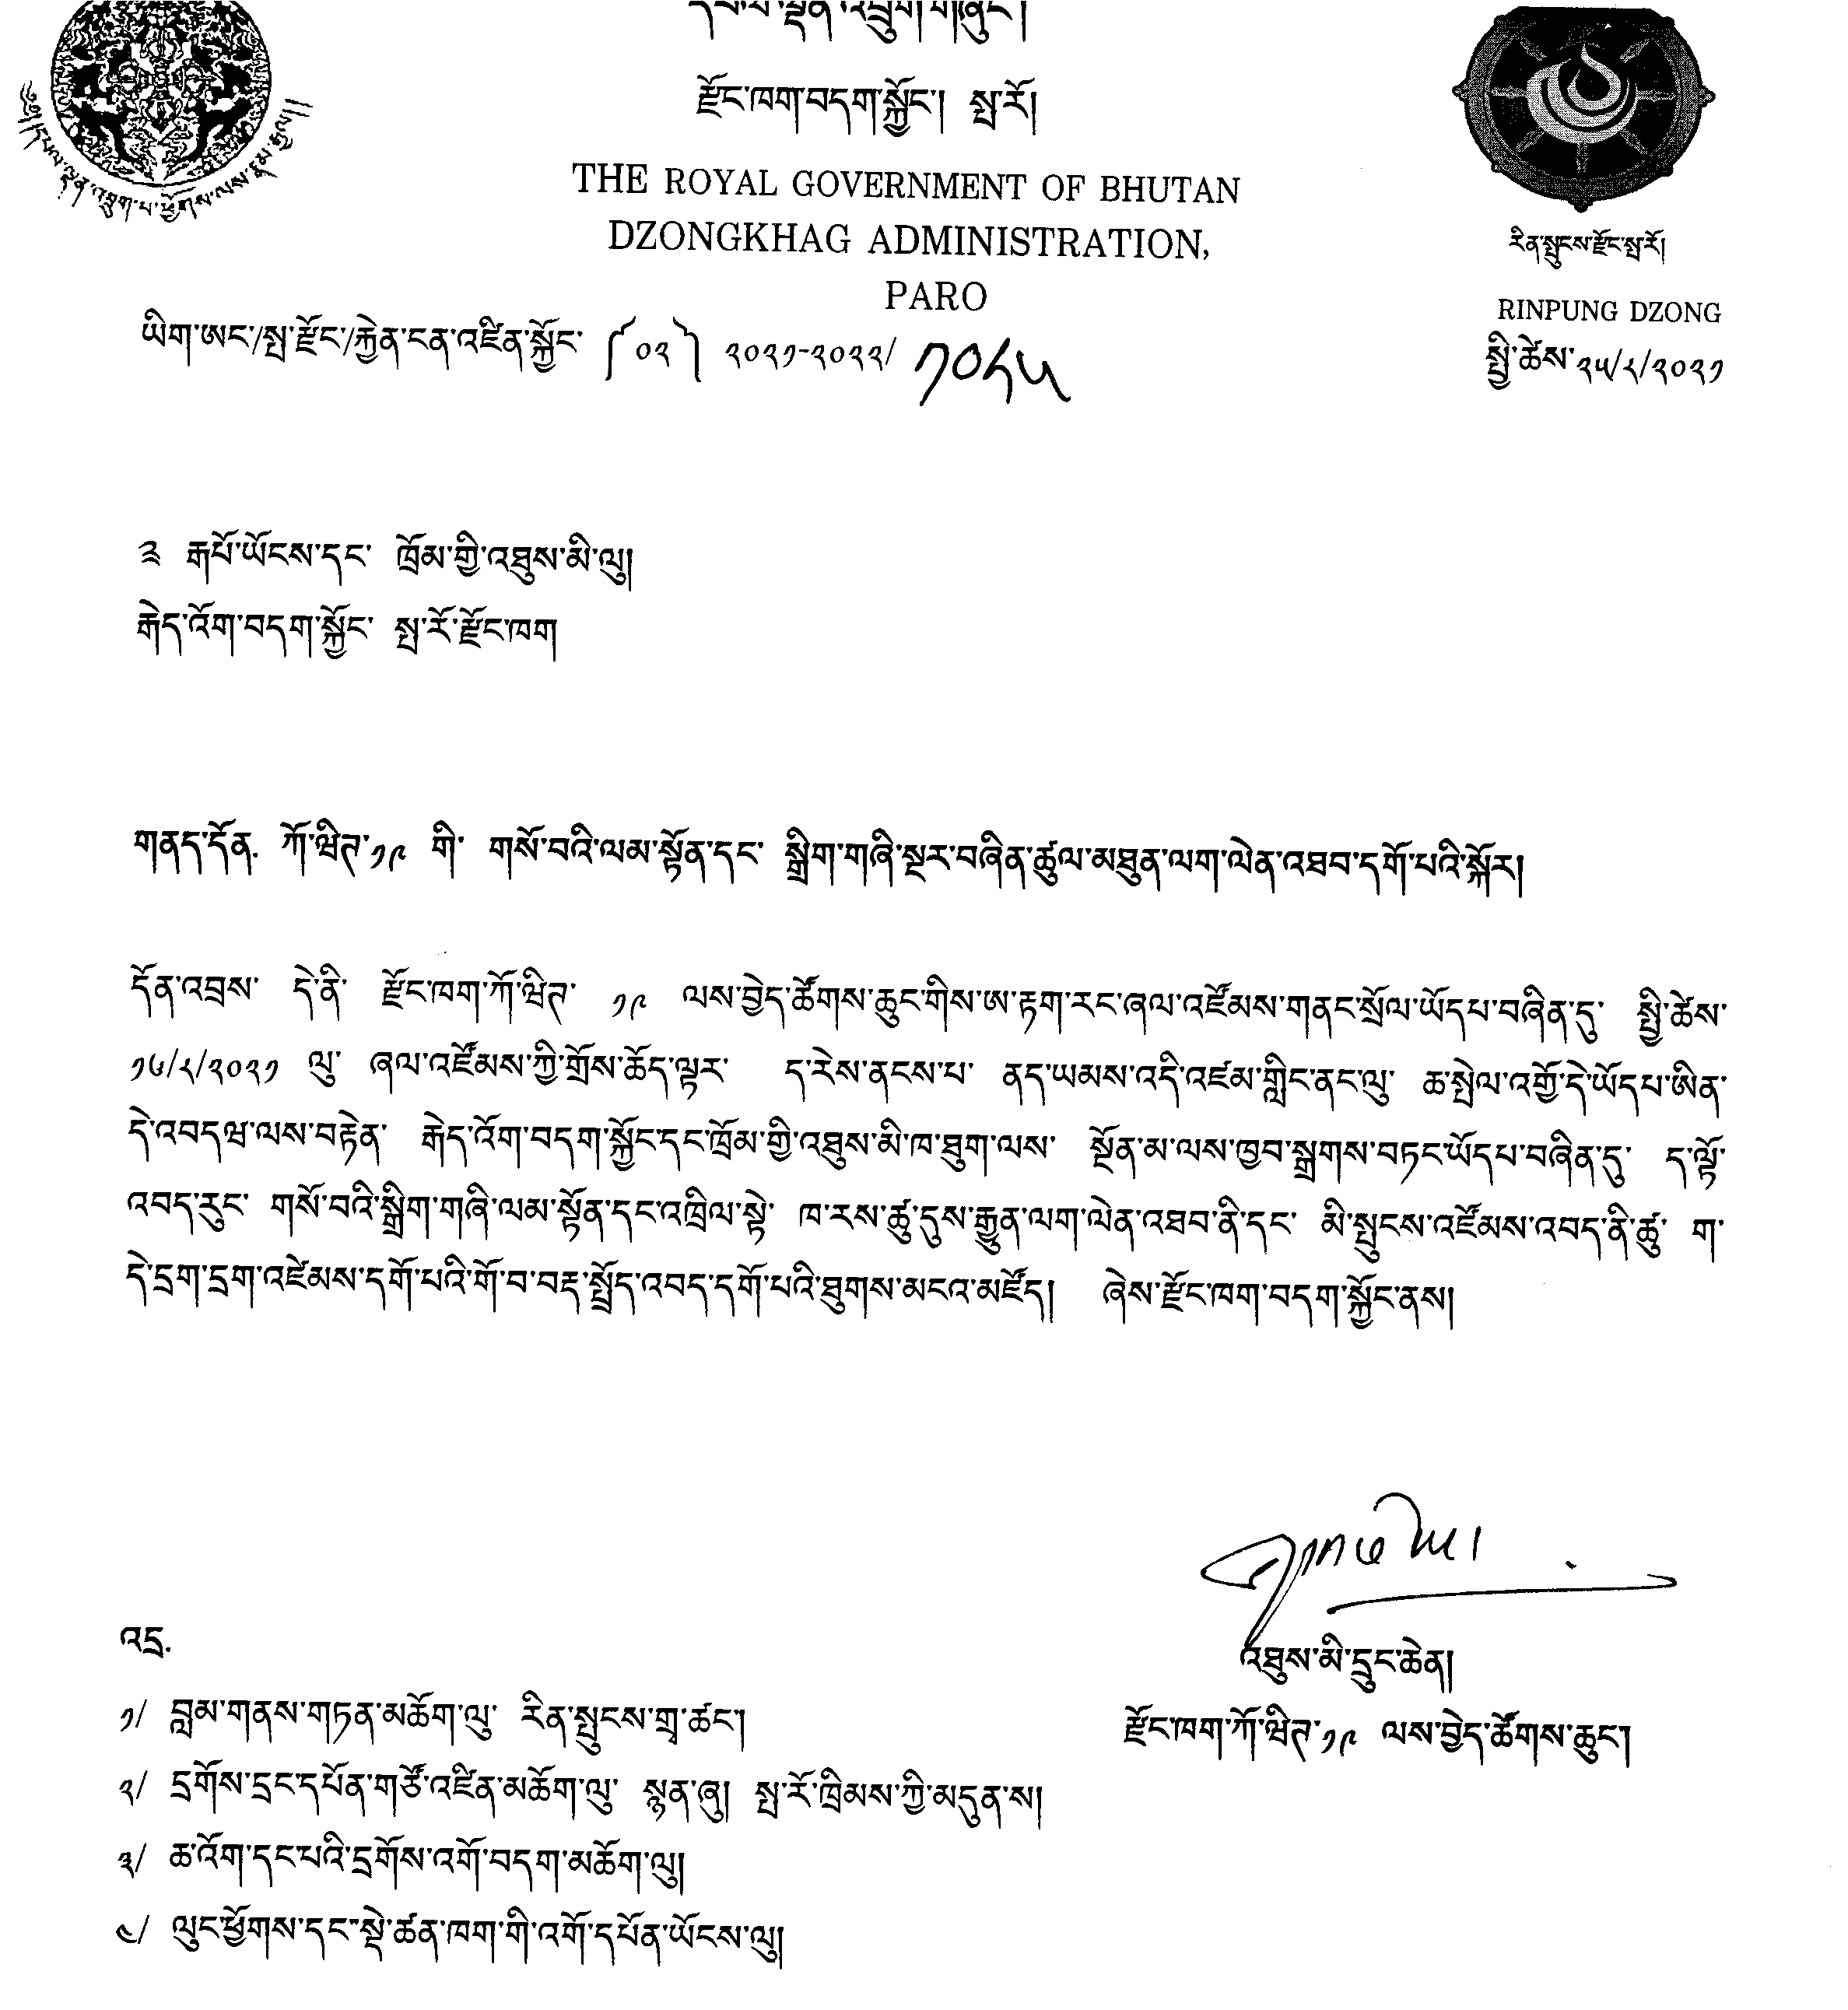 དཔལ་ལྡན་འབྲུག་གཞུང་།
རྫོང་ཁག་བདག་སྐྱོང་། སྤ་རོ།
THE ROYAL GOVERNMENT OF BHUTAN
DZONGKHAG ADMINISTRATION,
PARO
༄༅།།དཔལ་ལྡན་འབྲུག་པ་ཕྱོགས་ལས་རྣམ་རྒྱལ།།
རིན་སྤུངས་རྫོང་སྤ་རོ།
RINPUNG DZONG
ཡིག་ཨང་/སྤ་རྫོང་/རྐྱེན་ངན་འཛིན་སྐྱོང་ ༼ ༠༢ ༽ ༢༠༢༡-༢༠༢༢/
སྤྱི་ཚེས་༢༥/༨/༢༠༢༡
༣ རྒཔོ་ཡོངས་དང་ ཁྲོམ་གྱི་འཐུས་མི་ལུ།
རྒེད་འོག་བདག་སྐྱོང་ སྤ་རོ་རྫོང་ཁག
གནད་དོན. ཀོ་ཝིཊ་༡༩ གི་ གསོ་བའི་ལམ་སྟོན་དང་ སྒྲིག་གཞི་སྔར་བཞིན་ཚུལ་མཐུན་ལག་ལེན་འཐབ་དགོ་པའི་སྐོར།
དོན་འབྲས་ དེ་ནི་ རྫོང་ཁག་ཀོ་ཝིཊ་ ༡༩ ལས་བྱེད་ཚོགས་ཆུང་གིས་ཨ་རྟག་རང་ཞལ་འཛོམས་གནང་སྲོལ་ཡོདཔ་བཞིན་དུ་ སྤྱི་ཚེས་
༡༦/༨/༢༠༢༡ ལུ་ ཞལ་འཛོམས་ཀྱི་གྲོས་ཆོད་ལྟར་ ད་རེས་ནངས་པ་ ནད་ཡམས་འདི་འཛམ་གླིང་ནང་ལུ་ ཆ་སྤེལ་འགྱོ་དེ་ཡོདཔ་ཨིན་
དེ་འབདཝ་ལས་བརྟེན་ རྒེད་འོག་བདག་སྐྱོང་དང་ཁྲོམ་གྱི་འཐུས་མི་ཁ་ཐུག་ལས་ སྔོན་མ་ལས་ཁྱབ་སྒྲགས་བཏང་ཡོདཔ་བཞིན་དུ་ ད་ལྟོ་
འབད་རུང་ གསོ་བའི་སྒྲིག་གཞི་ལམ་སྟོན་དང་འཁྲིལ་སྟེ་ ཁ་རས་ཚུ་དུས་རྒྱུན་ལག་ལེན་འཐབ་ནི་དང་ མི་སྤུངས་འཛོམས་འབད་ནི་ཚུ་ ག་
དེ་དྲག་དྲག་འཛེམས་དགོ་པའི་གོ་བ་བརྡ་སྤྲོད་འབད་དགོ་པའི་ཐུགས་མངའ་མཛོད། ཞེས་རྫོང་ཁག་བདག་སྐྱོང་ནས།
འཐུས་མི་དྲུང་ཆེན།
རྫོང་ཁག་ཀོ་ཝིཊ་༡༩ ལས་བྱེད་ཚོགས་ཆུང་།
འདྲ.
༡/ བླམ་གནས་གཏན་མཆོག་ལུ་ རིན་སྤུངས་གྲྭ་ཚང་།
༢/ དྲགོས་དྲང་དཔོན་གཙོ་འཛིན་མཆོག་ལུ་ སྙན་ཞུ། སྤ་རོ་ཁྲིམས་ཀྱི་མདུན་ས།
༣/ ཆ་འོག་དང་པའི་དྲགོས་འགོ་བདག་མཆོག་ལུ།
༤/ ལུང་ཕྱོགས་དང་སྡེ་ཚན་ཁག་གི་འགོ་དཔོན་ཡོངས་ལུ།